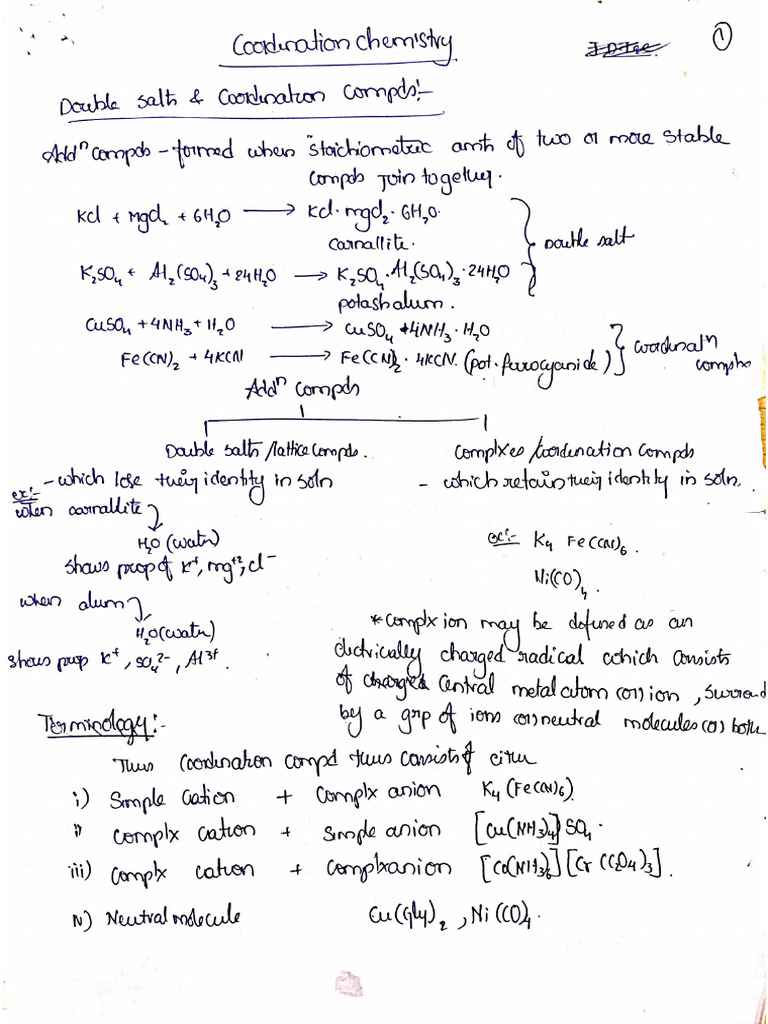 Coordination chemistry
1
Double salts & Coordination Compds:-
Addn compds - formed when "stoichiometric amts of two or more stable
compds join together.
KCl + MgCl2 + 6H2O → KCl·MgCl2·6H2O.
carnallite.
Double salt
K2SO4 + Al2(SO4)3 + 24H2O → K2SO4·Al2(SO4)3·24H2O
potash alum.
CuSO4 + 4NH3 + H2O → CuSO4 + 4NH3·H2O
Fe(CN)2 + 4KCN → Fe(CN)2·4KCN. (pot. ferrocyanide)
coordinatn compds
Addn compds
Double salts/lattice compds. complxes/coordination compds
- which lose their identity in soln - which retain their identity in soln.
ex:-
when carnallite
H2O (water)
shows prop of K+, mg+2, cl-
ex:- K4 Fe(CN)6.
Ni(CO)4.
when alum
H2O (water)
shows prop K+, SO4 2-, Al3+.
* complx ion may be defined as an
electrically charged radical which consists
of charged central metal atom (or) ion, surround
by a grp of ions (or) neutral molecules (or) both
Terminology:-
Thus coordination compd thus consists of either
i) Simple cation + complx anion K4(Fe(CN)6).
ii complx cation + simple anion [Cu(NH3)4]SO4.
iii) complx cation + complxanion [Co(NH3)6][Cr(C2O4)3].
iv) Neutral molecule Cu(gly)2, Ni(CO)4.